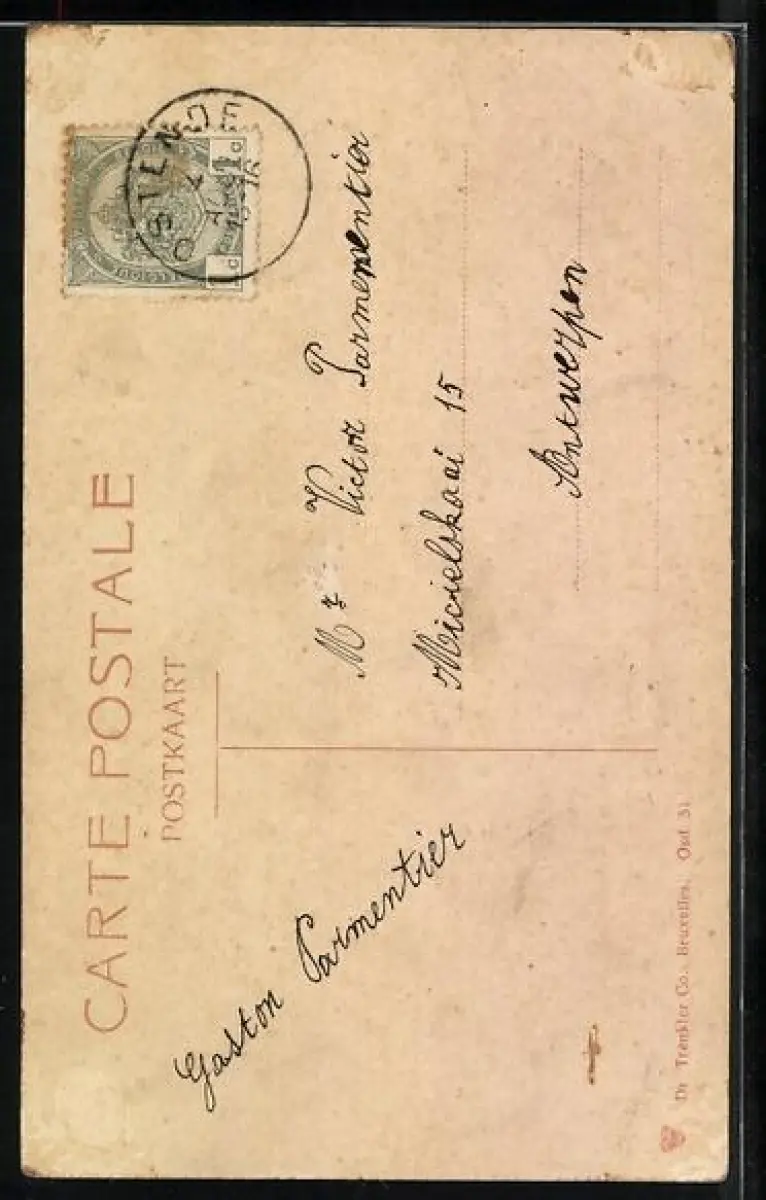 CARTE POSTALE
POSTKAART
OSTENDE
Gaston Parmentier
Mr Victor Parmentier
Micielskaai 15
Antwerpen
Dr Trenkler Co., Bruxelles. Ost. 31